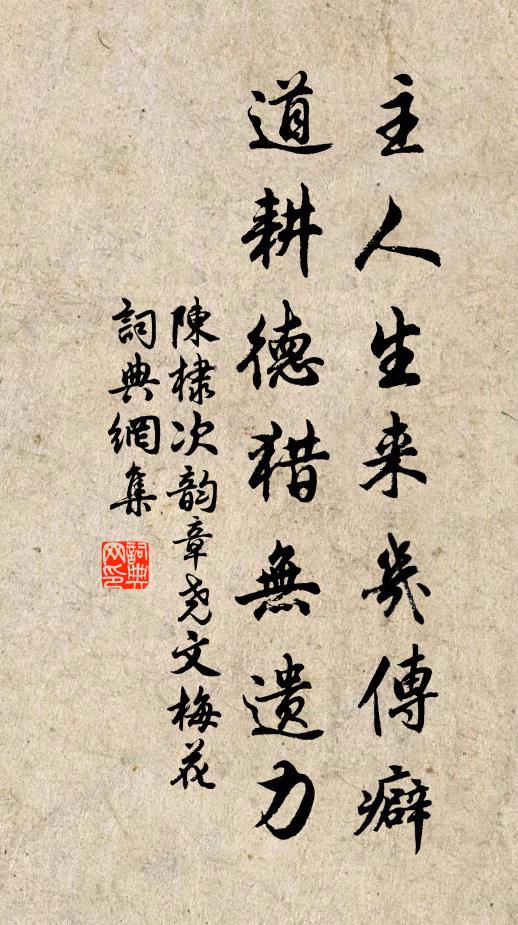 主人生来癸傳癖
道耕德猎無遗力
陳棣次韵章尭文梅花
詞典網集
詞典网印